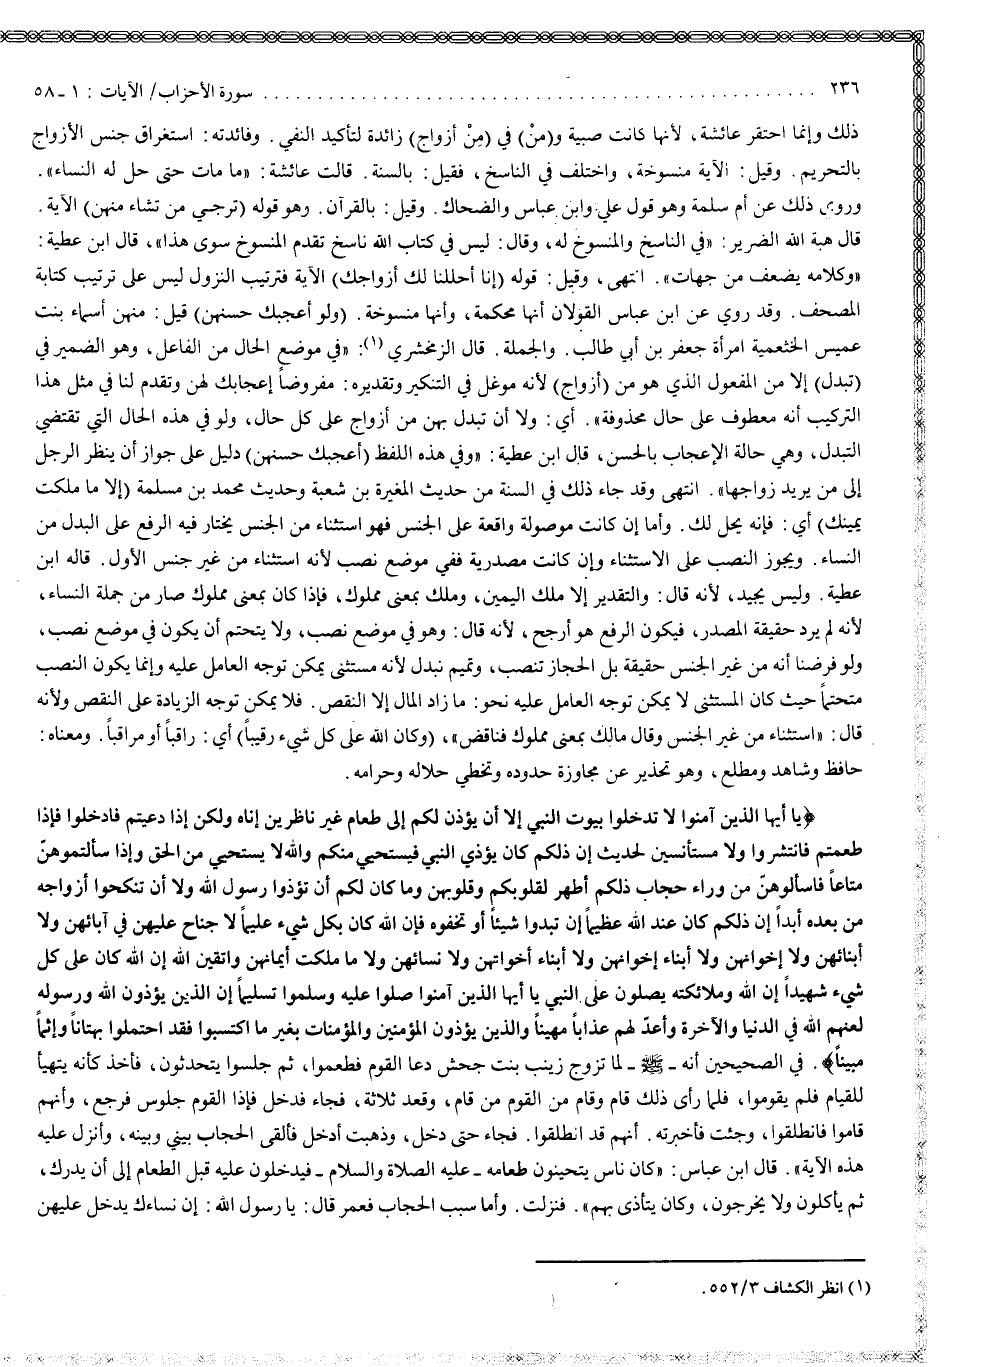 ٢٣٦ ........................................ سورة الأحزاب/ الآيات : ١ ـ ٥٨
ذلك وإنما احتقر عائشة، لأنها كانت صبية و(منْ) في (مِنْ أزواج) زائدة لتأكيد النفي. وفائدته: استغراق جنس الأزواج
بالتحريم. وقيل: الآية منسوخة، واختلف في الناسخ، فقيل: بالسنة. قالت عائشة: «ما مات حتى حل له النساء».
وروي ذلك عن أم سلمة وهو قول علي وابن عباس والضحاك. وقيل: بالقرآن. وهو قوله (ترجي من تشاء منهن) الآية.
قال هبة الله الضرير: «في الناسخ والمنسوخ له، وقال: ليس في كتاب الله ناسخ تقدم المنسوخ سوى هذا»، قال ابن عطية:
«وكلامه يضعف من جهات». انتهى، وقيل: قوله (إنا أحللنا لك أزواجك) الآية فترتيب النزول ليس على ترتيب كتابة
المصحف. وقد روي عن ابن عباس القولان أنها محكمة، وأنها منسوخة. (ولو أعجبك حسنهن) قيل: منهن أسماء بنت
عميس الخثعمية امرأة جعفر بن أبي طالب. والجملة. قال الزمخشري (١): «في موضع الحال من الفاعل، وهو الضمير في
(تبدل) إلا من المفعول الذي هو من (أزواج) لأنه موغل في التنكير وتقديره: مفروضاً إعجابك لهن وتقدم لنا في مثل هذا
التركيب أنه معطوف على حال محذوفة». أي: ولا أن تبدل بهن من أزواج على كل حال، ولو في هذه الحال التي تقتضي
التبدل، وهي حالة الإعجاب بالحسن، قال ابن عطية: «وفي هذه اللفظ (أعجبك حسنهن) دليل على جواز أن ينظر الرجل
إلى من يريد زواجها». انتهى وقد جاء ذلك في السنة من حديث المغيرة بن شعبة وحديث محمد بن مسلمة (إلا ما ملكت
يمينك) أي: فإنه يحل لك. وأما إن كانت موصولة واقعة على الجنس فهو استثناء من الجنس يختار فيه الرفع على البدل من
النساء. ويجوز النصب على الاستثناء وإن كانت مصدرية ففي موضع نصب لأنه استثناء من غير جنس الأول. قاله ابن
عطية. وليس بجيد، لأنه قال: والتقدير إلا ملك اليمين، وملك بمعنى مملوك، فإذا كان بمعنى مملوك صار من جملة النساء،
لأنه لم يرد حقيقة المصدر، فيكون الرفع هو أرجح، لأنه قال: وهو في موضع نصب، ولا يتحتم أن يكون في موضع نصب،
ولو فرضنا أنه من غير الجنس حقيقة بل الحجاز تنصب، وتميم تبدل لأنه مستثنى يمكن توجه العامل عليه وإنما يكون النصب
متحتماً حيث كان المستثنى لا يمكن توجه العامل عليه نحو: ما زاد المال إلا النقص. فلا يمكن توجه الزيادة على النقص ولأنه
قال: «استثناء من غير الجنس وقال مالك بمعنى مملوك فناقض»، (وكان الله على كل شيء رقيباً) أي: راقباً أو مراقباً. ومعناه:
حافظ وشاهد ومطلع، وهو تحذير عن مجاوزة حدوده وتخطي حلاله وحرامه.
﴿يا أيها الذين آمنوا لا تدخلوا بيوت النبي إلا أن يؤذن لكم إلى طعام غير ناظرين إناه ولكن إذا دعيتم فادخلوا فإذا
طعمتم فانتشروا ولا مستأنسين لحديث إن ذلكم كان يؤذي النبي فيستحيي منكم والله لا يستحيي من الحق وإذا سألتموهنّ
متاعاً فاسألوهنّ من وراء حجاب ذلكم أطهر لقلوبكم وقلوبهن وما كان لكم أن تؤذوا رسول الله ولا أن تنكحوا أزواجه
من بعده أبداً إن ذلكم كان عند الله عظيماً إن تبدوا شيئاً أو تخفوه فإن الله كان بكل شيء عليماً لا جناح عليهن في آبائهن ولا
أبنائهن ولا إخوانهن ولا أبناء إخوانهن ولا أبناء أخواتهن ولا نسائهن ولا ما ملكت أيمانهن واتقين الله إن الله كان على كل
شيء شهيداً إن الله وملائكته يصلون على النبي يا أيها الذين آمنوا صلوا عليه وسلموا تسليماً إن الذين يؤذون الله ورسوله
لعنهم الله في الدنيا والآخرة وأعدّ لهم عذاباً مهيناً والذين يؤذون المؤمنين والمؤمنات بغير ما اكتسبوا فقد احتملوا بهتاناً وإثماً
مبيناً﴾. في الصحيحين أنه ـ ﷺ ـ لما تزوج زينب بنت جحش دعا القوم فطعموا، ثم جلسوا يتحدثون، فأخذ كأنه يتهيأ
للقيام فلم يقوموا، فلما رأى ذلك قام وقام من القوم من قام، وقعد ثلاثة، فجاء فدخل فإذا القوم جلوس فرجع، وأنهم
قاموا فانطلقوا، وجئت فأخبرته. أنهم قد انطلقوا. فجاء حتى دخل، وذهبت أدخل فألقى الحجاب بيني وبينه، وأنزل عليه
هذه الآية». قال ابن عباس: «كان ناس يتحينون طعامه ـ عليه الصلاة والسلام ـ فيدخلون عليه قبل الطعام إلى أن يدرك،
ثم يأكلون ولا يخرجون، وكان يتأذى بهم». فنزلت. وأما سبب الحجاب فعمر قال: يا رسول الله: إن نساءك يدخل عليهن
(١) انظر الكشاف ٥٥٢/٣.